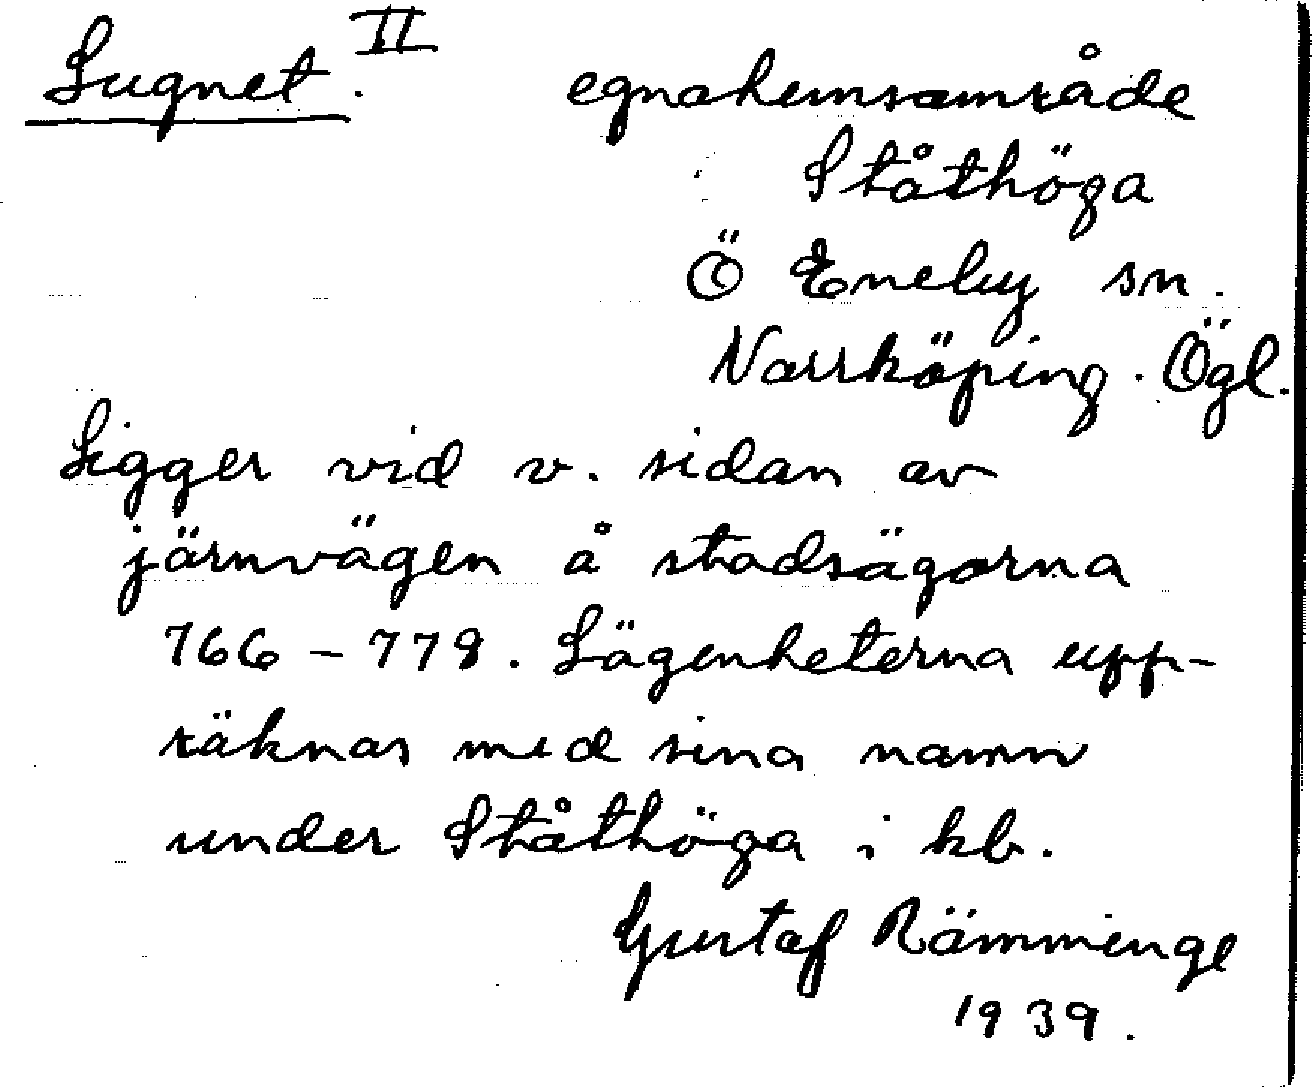 Lugnet. II egnahemsområde
Ståthöga
Ö Eneby sn.
Norrköping. Ögl.
Ligger vid v. sidan av
järnvägen å stadsägorna
766-778. Lägenheterna upp-
räknas med sina namn
under Ståthöga i kb.
Gustaf Rämminge
1939.